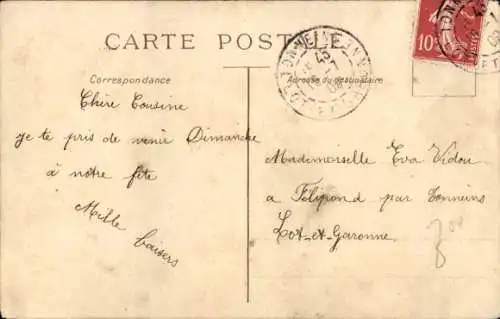 CARTE POSTALE
Correspondance
Chère Cousine
je te pris de venir Dimanche
à notre fête
Mille
baisers
Adresse du destinataire
Mademoiselle Eva Vidou
a Filipond par Tonneins
Lot-et-Garonne
10